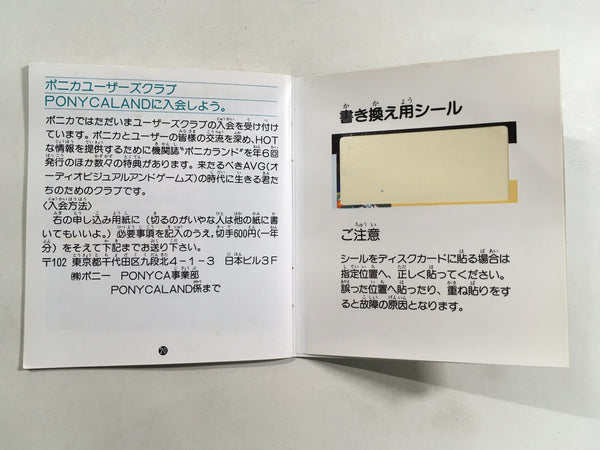 ポニカユーザーズクラブ
PONYCALANDに入会しよう。
ポニカではただいまユーザーズクラブの入会を受け付け
ています。ポニカとユーザーの皆様の交流を深め、HOT
な情報を提供するために機関誌"ポニカランド"を年6回
発行のほか数々の特典があります。来たるべきAVG(オ
ーディオビジュアルアンドゲームズ)の時代に生きる君た
ちのためのクラブです。
〈入会方法〉
右の申し込み用紙に(切るのがいやな人は他の紙に書
いてもいいよ。)必要事項を記入のうえ、切手600円(一年
分)をそえて下記までお送り下さい。
〒102 東京都千代田区九段北4-1-3 日本ビル3F
㈱ポニー PONYCA事業部
PONYCALAND係まで
20
書き換え用シール
ご注意
シールをディスクカードに貼る場合は
指定位置へ、正しく貼ってください。
誤った位置へ貼ったり、重ね貼りをす
ると故障の原因となります。